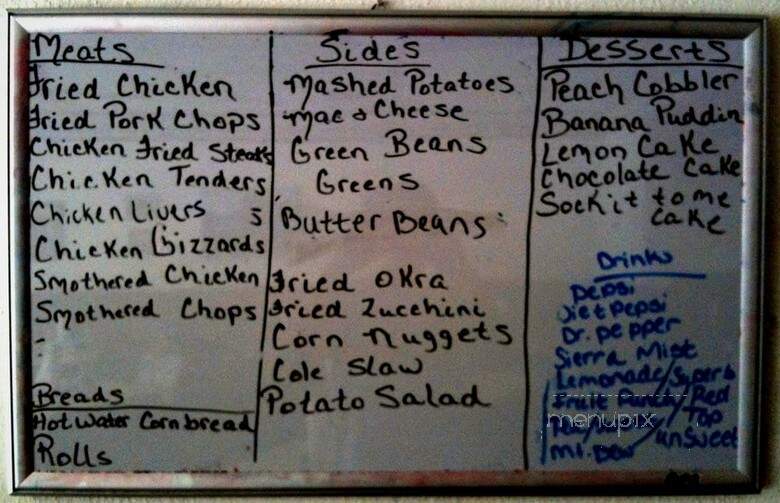 Meats
Fried Chicken
Fried Pork Chops
Chicken Fried Steaks
Chicken Tenders
Chicken Livers 5
Chicken Gizzards
Smothered Chicken
Smothered Chops
Breads
Hot Water Cornbread
Rolls
Sides
Mashed Potatoes
Mac & Cheese
Green Beans
Greens
Butter Beans
Fried Okra
Fried Zucchini
Corn Nuggets
Cole Slaw
Potato Salad
Desserts
Peach Cobbler
Banana Puddin
Lemon Cake
Chocolate Cake
Sock it to me
Cake
Drinks
Pepsi
Diet Pepsi
Dr. pepper
Sierra Mist
Lemonade/Superb
Fruit / Red
Top
unsweet
mt. Dew
menupix